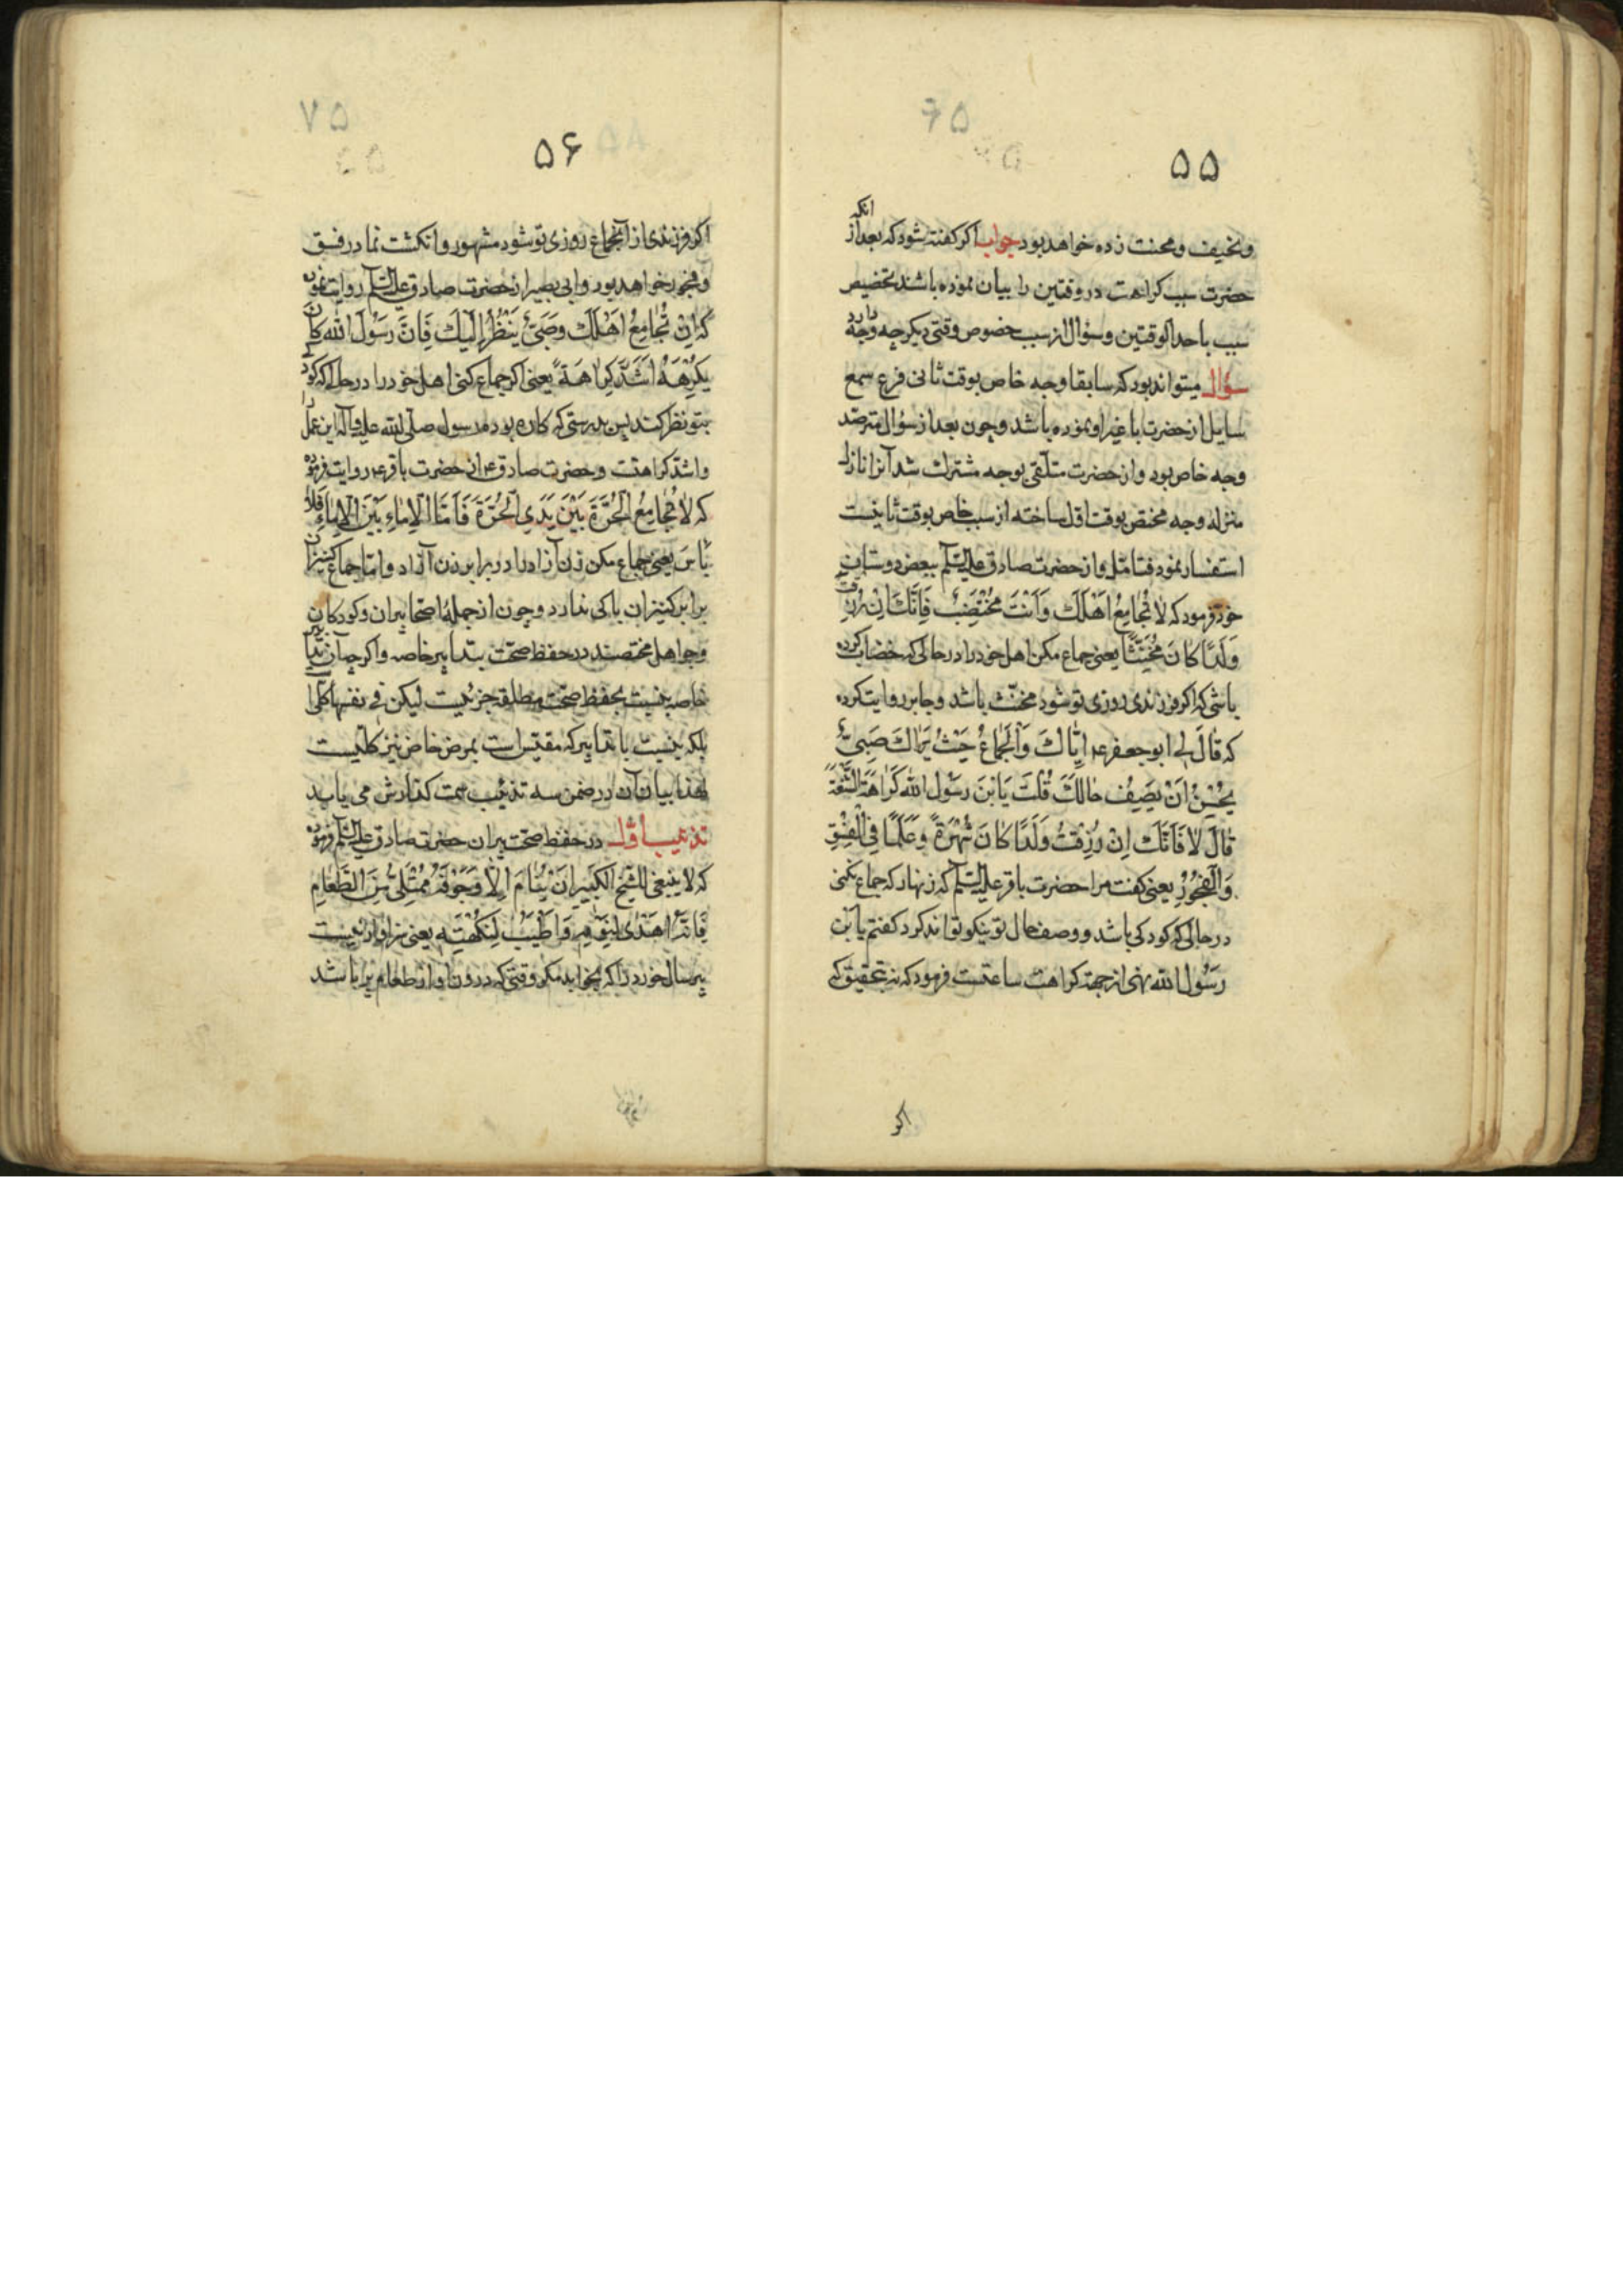 ۵۵
ونحیف ومحنت زده خواهد بود جواب اکر کفته شود که بعد از انکه
حضرت سبب کراهت در وقتین را بیان نموده باشند تخصیص
سبب باحد الوقتین وسؤال از سبب خصوص وقتی دیکر چه وجه دارد
سؤال میتواند بود که سابقا وجه خاص بوقت ثانی فرع سمع
سایل از حضرت یا غیر او نموده باشد وچون بعد از سؤال مترصد
وجه خاص بود واز حضرت متلقی بوجه مشترك شد آنرا نازل
منزله وجه مختص بوقت اول ساخته از سبب خاص بوقت ثانیست
استفسار نمود فتامّل واز حضرت صادق علیه السّلم ببعض دوستان
خود فرمود که لَا تُجَامِعْ اَهْلَكَ وَاَنْتَ مُخْتَضِبٌ فَاِنَّكَ اِنْ رُزِقْتَ
وَلَدًا كَانَ مُخَنَّثًا یعنی جماع مکن اهل خود را در حالی که خضاب کرده
باشی که اکر فرزندی روزی تو شود مخنّث باشد وجابر روایت کرده
که قَالَ لی ابو جعفر ع اِیَّاكَ وَالْجِمَاعَ حَیْثُ یَرَاكَ صَبِیٌّ
یُحْسِنُ اَنْ یَصِفَ حَالَكَ قُلْتُ یَابْنَ رَسُولِ الله كَرَاهَةَ الشُّنْعَةِ
قَالَ لَا فَاِنَّكَ اِنْ رُزِقْتَ وَلَدًا كَانَ شُهْرَةً وَعَلَمًا فِی الْفِسْقِ
وَالْفُجُورِ یعنی کفت مرا حضرت باقر علیه السّلم که زنهار که جماع نکنی
در حالی که کودکی باشد ووصف حال تو نیکو تواند کرد کفتم یابن
رَسُول الله نهی از جهة کراهت ساعتست فرمود که نه بتحقیق که
اکر
۵۶
اکر فرزندی از آنجماع روزی تو شود مشهور وانکشت نما در فسق
وفجور خواهد بود وابی بصیر از حضرت صادق علیه السّلم روایت نموده
که اِنْ تُجَامِعْ اَهْلَكَ وَصَبِیٌّ یَنْظُرُ اِلَیْكَ فَاِنَّ رَسُولَ الله كَانَ
یَكْرَهُهُ اَشَدَّ كَرَاهَةً یعنی اکر جماع کنی اهل خود را در حالی که کودکی
بتو نظر کند پس بدرستی که کاره بوده رسول صلّی الله علیه وآله این عمل را
واشد کراهت وحضرت صادق ع از حضرت باقر ع روایت فرموده
که لَا تُجَامِعُ الْحُرَّةَ بَیْنَ یَدَیِ الْحُرَّةِ فَاَمَّا الْاِمَاءِ بَیْنَ الْاِمَاءِ فَلَا
بَأسَ یعنی جماع مکن زن آزاد را در برابر زن آزاد وامّا جماع کنیزان
برابر کنیزان باکی ندارد وچون از جمله اصحّا پیران وکودکان
وحوامل مختصند در حفظ صحّت بتدابیر خاصه واکر چه آن تدابیر
خاصه بنسبت بحفظ صحّت مطلقه جزئیست لیکن فی نفسها کلّی
بلکه بنسبت با تدابیر که مقیّس است بمرض خاص نیز کلّیست
لهذا بیان آن در ضمن سه تذئیب سمت کذارش می یابد
تذئیب اوّل در حفظ صحّت پیران حضرت صادق علیه السّلم فرموده
که لَا ینبغی للشّیخ الْكَبِیرِ اَنْ یَنَامَ اِلَّا وَجَوْفُهُ مُمْتَلِئٌ مِنَ الطَّعَامِ
فَاِنَّهُ اَهْدَی لِنَوْمِهِ وَاَطْیَبُ لِنَكْهَتِهِ یعنی سزاوار نیست
پیر سال خورد را که بخوابد مکر وقتی که درون او از طعام پر باشد